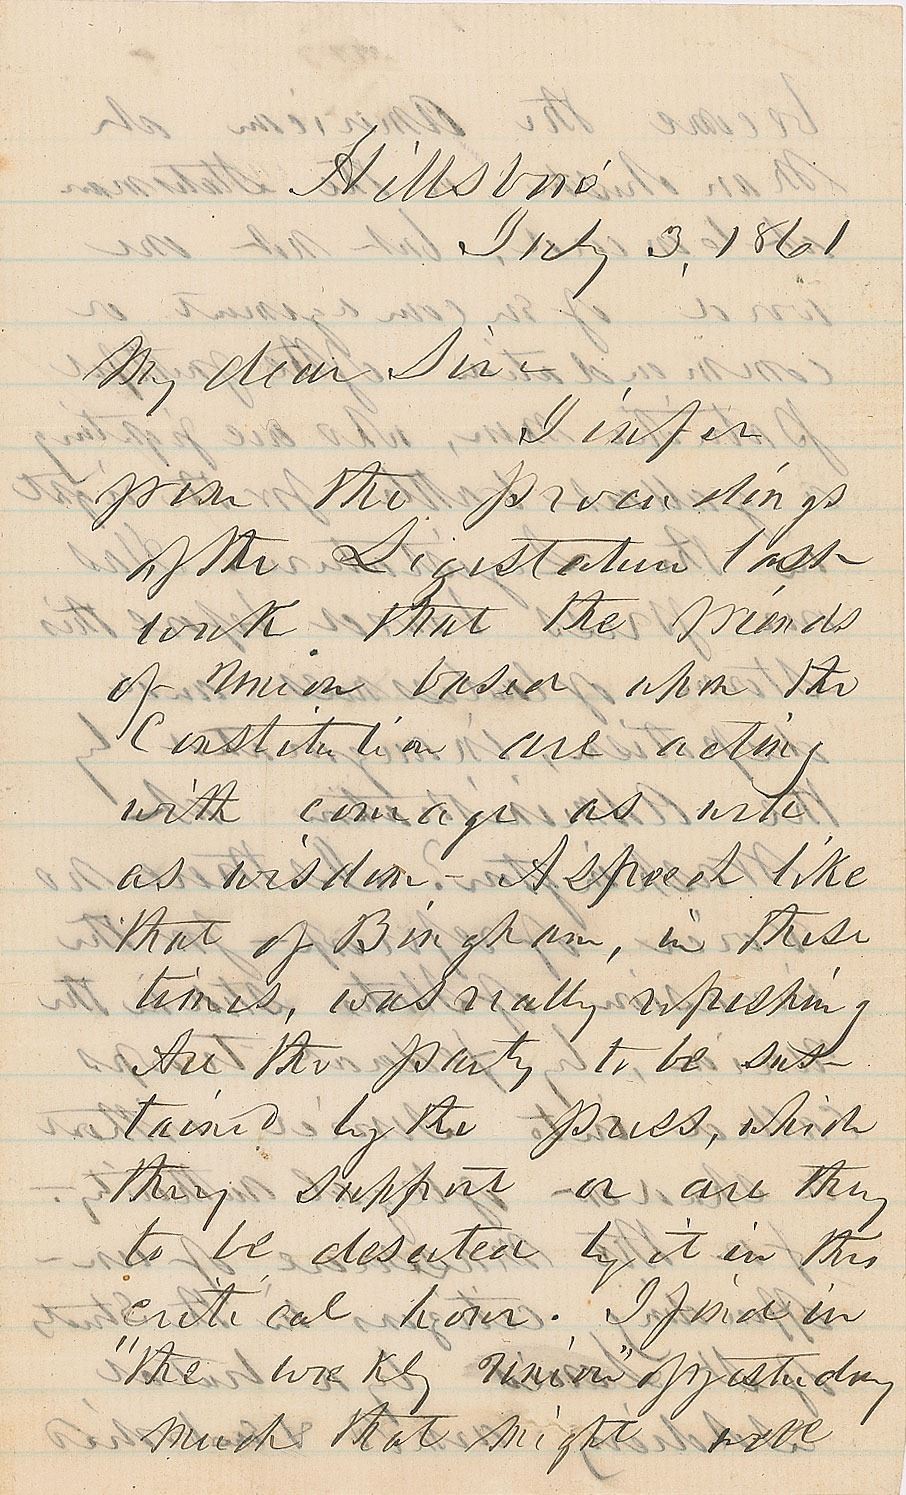 Hillsboro'
July 3, 1861
My dear Sir:
I infer
from the proceedings
of the Legislature last
week that the friends
of Union based upon the
Constitution are acting
with courage as well
as wisdom. - A speech like
that of Bingham, in these
times, was really refreshing
Are the party to be sus-
tained by the press, which
they support - or are they
to be deserted by it in this
critical hour. I find in
"the weekly Union" of yesterday
much that might well